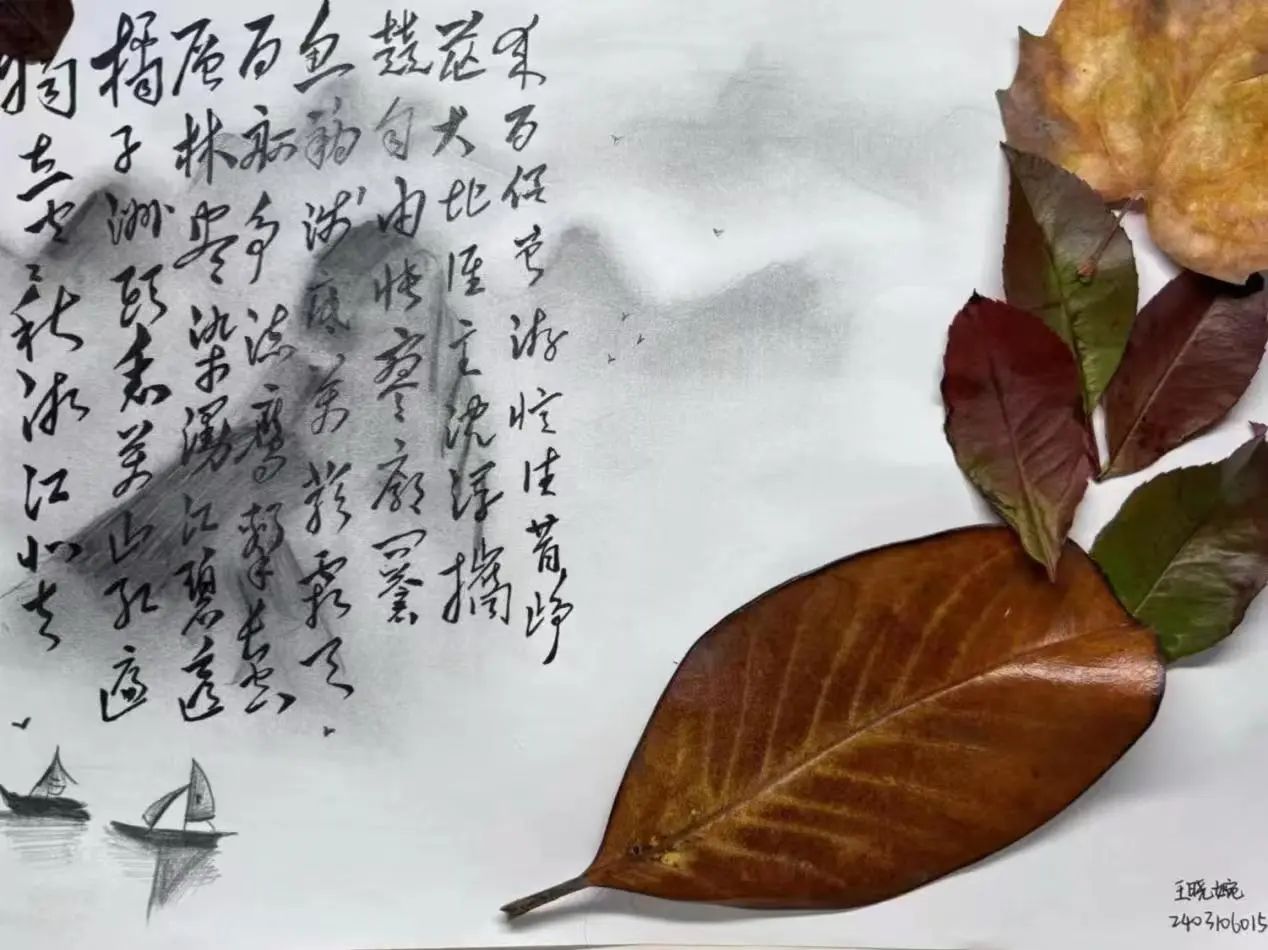 獨立寒秋湘江北去
橘子洲頭看萬山红遍
层林尽染漫江碧透
百舸争流鹰擊長空
鱼翔浅底萬類霜天
競自由怅寥廓問蒼
茫大地谁主沉浮攜
来百侣曾游忆往昔峥
王晓婉
2403106015